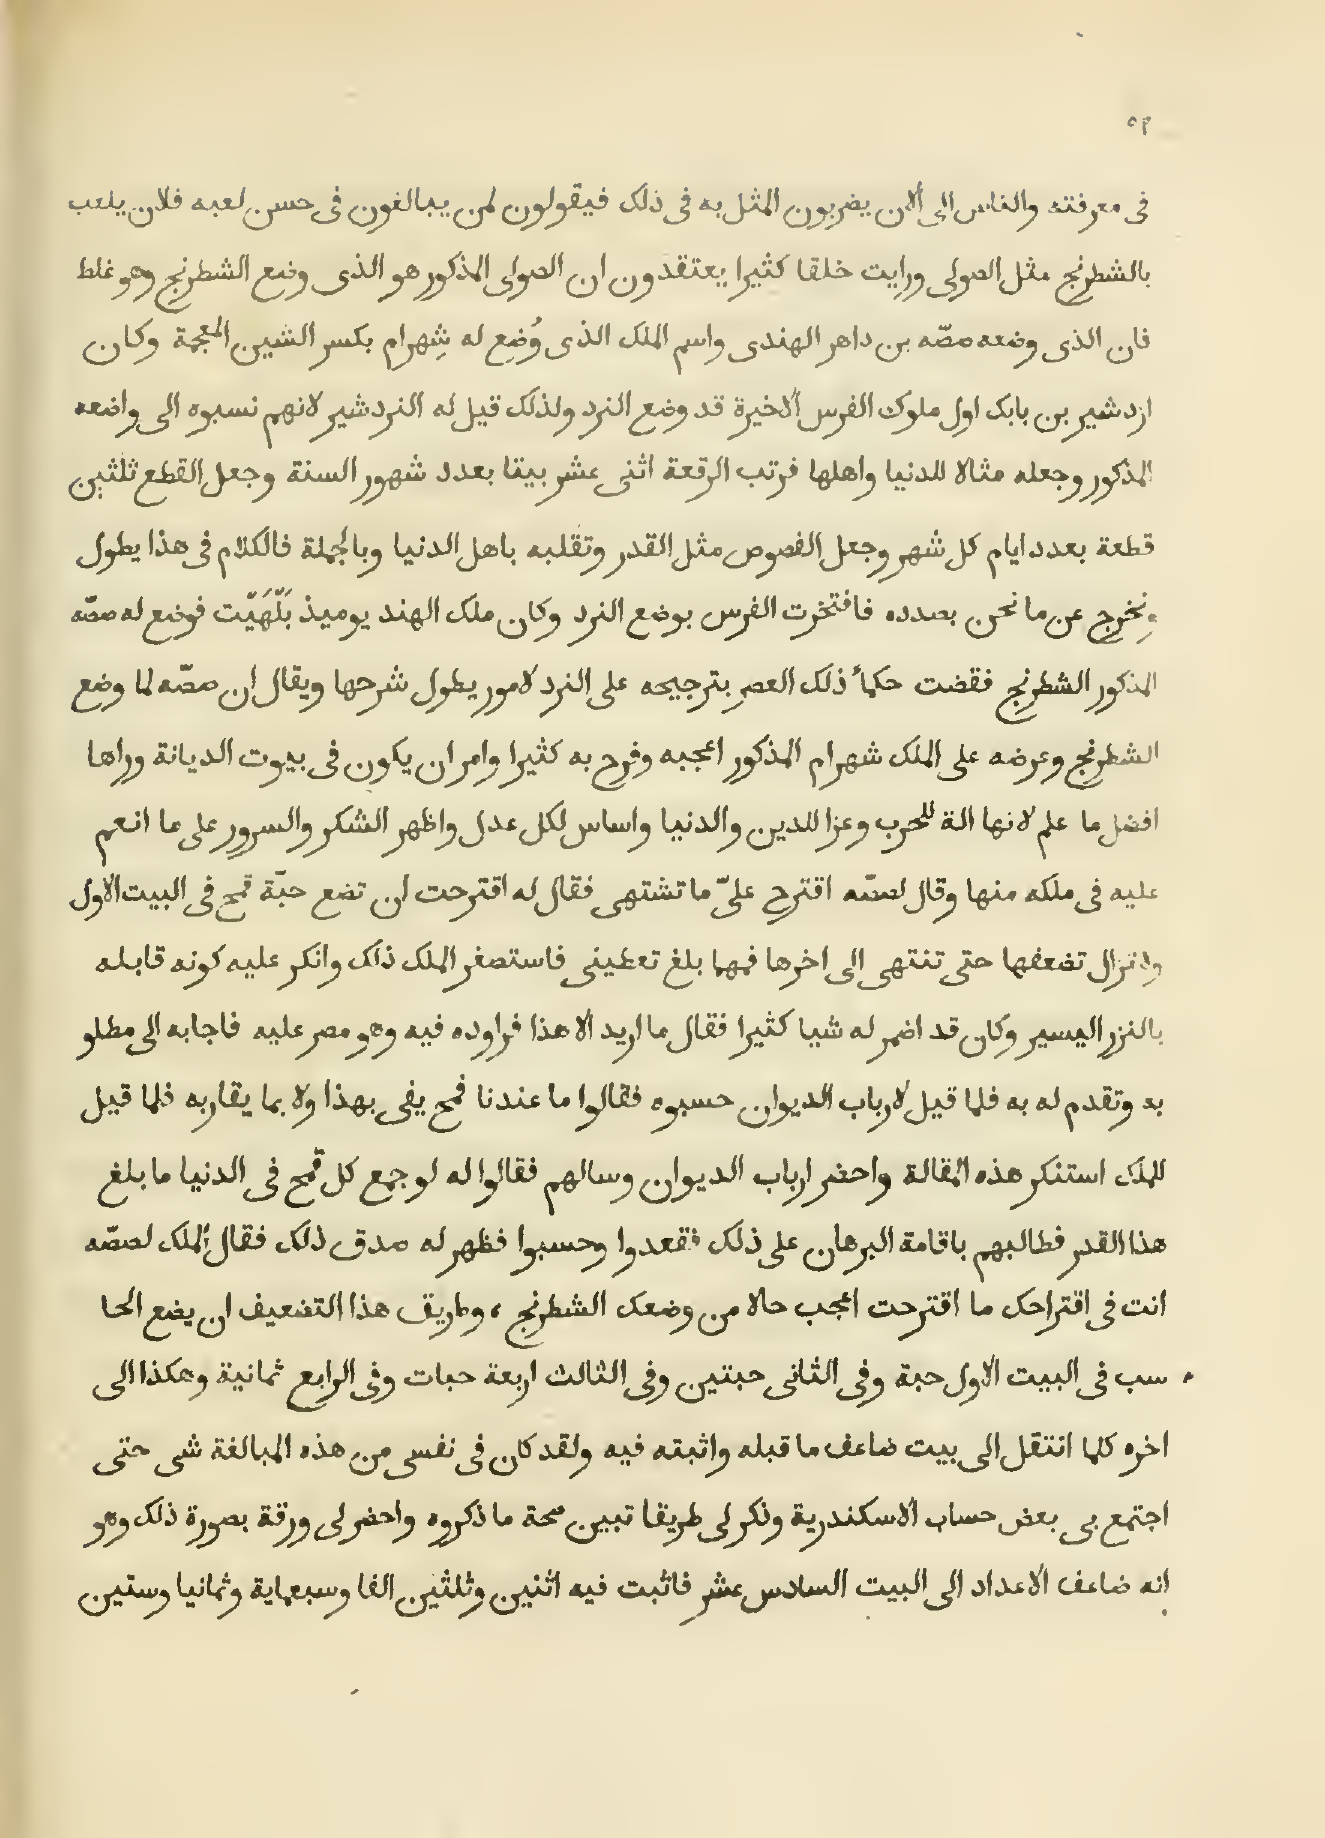 ٥٢
فى معرفته والناس الى الان يضربون المثل به فى ذلك فيقولون لمن يبالغون فى حسن لعبه فلان يلعب
بالشطرنج مثل الصولى ورايت خلقا كثيرا يعتقدون ان الصولى المذكور هو الذى وضع الشطرنج وهو غلط
فان الذى وضعه صصّه بن داهر الهندى واسم الملك الذى وُضِع له شِهرام بكسر الشين المعجمة وكان
ازدشير بن بابك اول ملوك الفرس الاخيرة قد وضع النرد ولذلك قيل له النردشير لانهم نسبوه الى واضعه
المذكور وجعله مثالا للدنيا واهلها فرتب الرقعة اثنى عشر بيتا بعدد شهور السنة وجعل القطع ثلثين
قطعة بعدد ايام كل شهر وجعل الفصوص مثل القدر وتقلبه باهل الدنيا وبالجملة فالكلام فى هذا يطول
ونخرج عن ما نحن بصدده فافتخرت الفرس بوضع النرد وكان ملك الهند يوميذ بَلّهَيّت فوضع له صصّه
المذكور الشطرنج فقضت حكمأ ذلك العصرِ بترجيحه على النرد لامور يطول شرحها ويقال ان صصّه لما وضع
الشطرنج وعرضه على الملك شهرام المذكور اعجبه وفرح به كثيرا وامر ان يكون فى بيوت الديانة وراها
افضل ما علم لانها الة للحرب وعزا للدين والدنيا واساس لكل عدل واظهر الشكر والسرور على ما انعم
عليه فى ملكه منها وقال لصصّه اقترح علىّ ما تشتهى فقال له اقترحت ان تضع حبّة قمح فى البيت الاول
ولا تزال تضعفها حتى تنتهى الى اخرها فمهما بلغ تعطينى فاستصغر الملك ذلك وانكر عليه كونه قابله
بالنزر اليسير وكان قد اضمر له شيا كثيرا فقال ما اريد الا هذا فراوده فيه وهو مصر عليه فاجابه الى مطلو
به وتقدم له به فلما قيل لارباب الديوان حسبوه فقالوا ما عندنا قمح يفى بهذا ولا بما يقاربه فلما قيل
للملك استنكر هذه المقالة واحضر ارباب الديوان وسالهم فقالوا له لو جمع كل قمح فى الدنيا ما بلغ
هذا القدر فطالبهم باقامة البرهان على ذلك فقعدوا وحسبوا فظهر له صدق ذلك فقال الملك لصصّه
انت فى اقتراحك ما اقترحت اعجب حالا من وضعك الشطرنج ، وطريق هذا التضعيف ان يضع الحا
سب فى البيت الاول حبة وفى الثانى حبتين وفى الثالث اربعة حبات وفى الرابع ثمانية وهكذا الى
اخره كلما انتقل الى بيت ضاعف ما قبله واثبته فيه ولقد كان فى نفسى من هذه المبالغة شى حتى
اجتمع بى بعض حساب الاسكندرية وذكر لى طريقا تبين صحة ما ذكروه واحضر لى ورقة بصورة ذلك وهو
انه ضاعف الاعداد الى البيت السادس عشر فاثبت فيه اثنين وثلثين الفا وسبعماية وثمانيا وستين